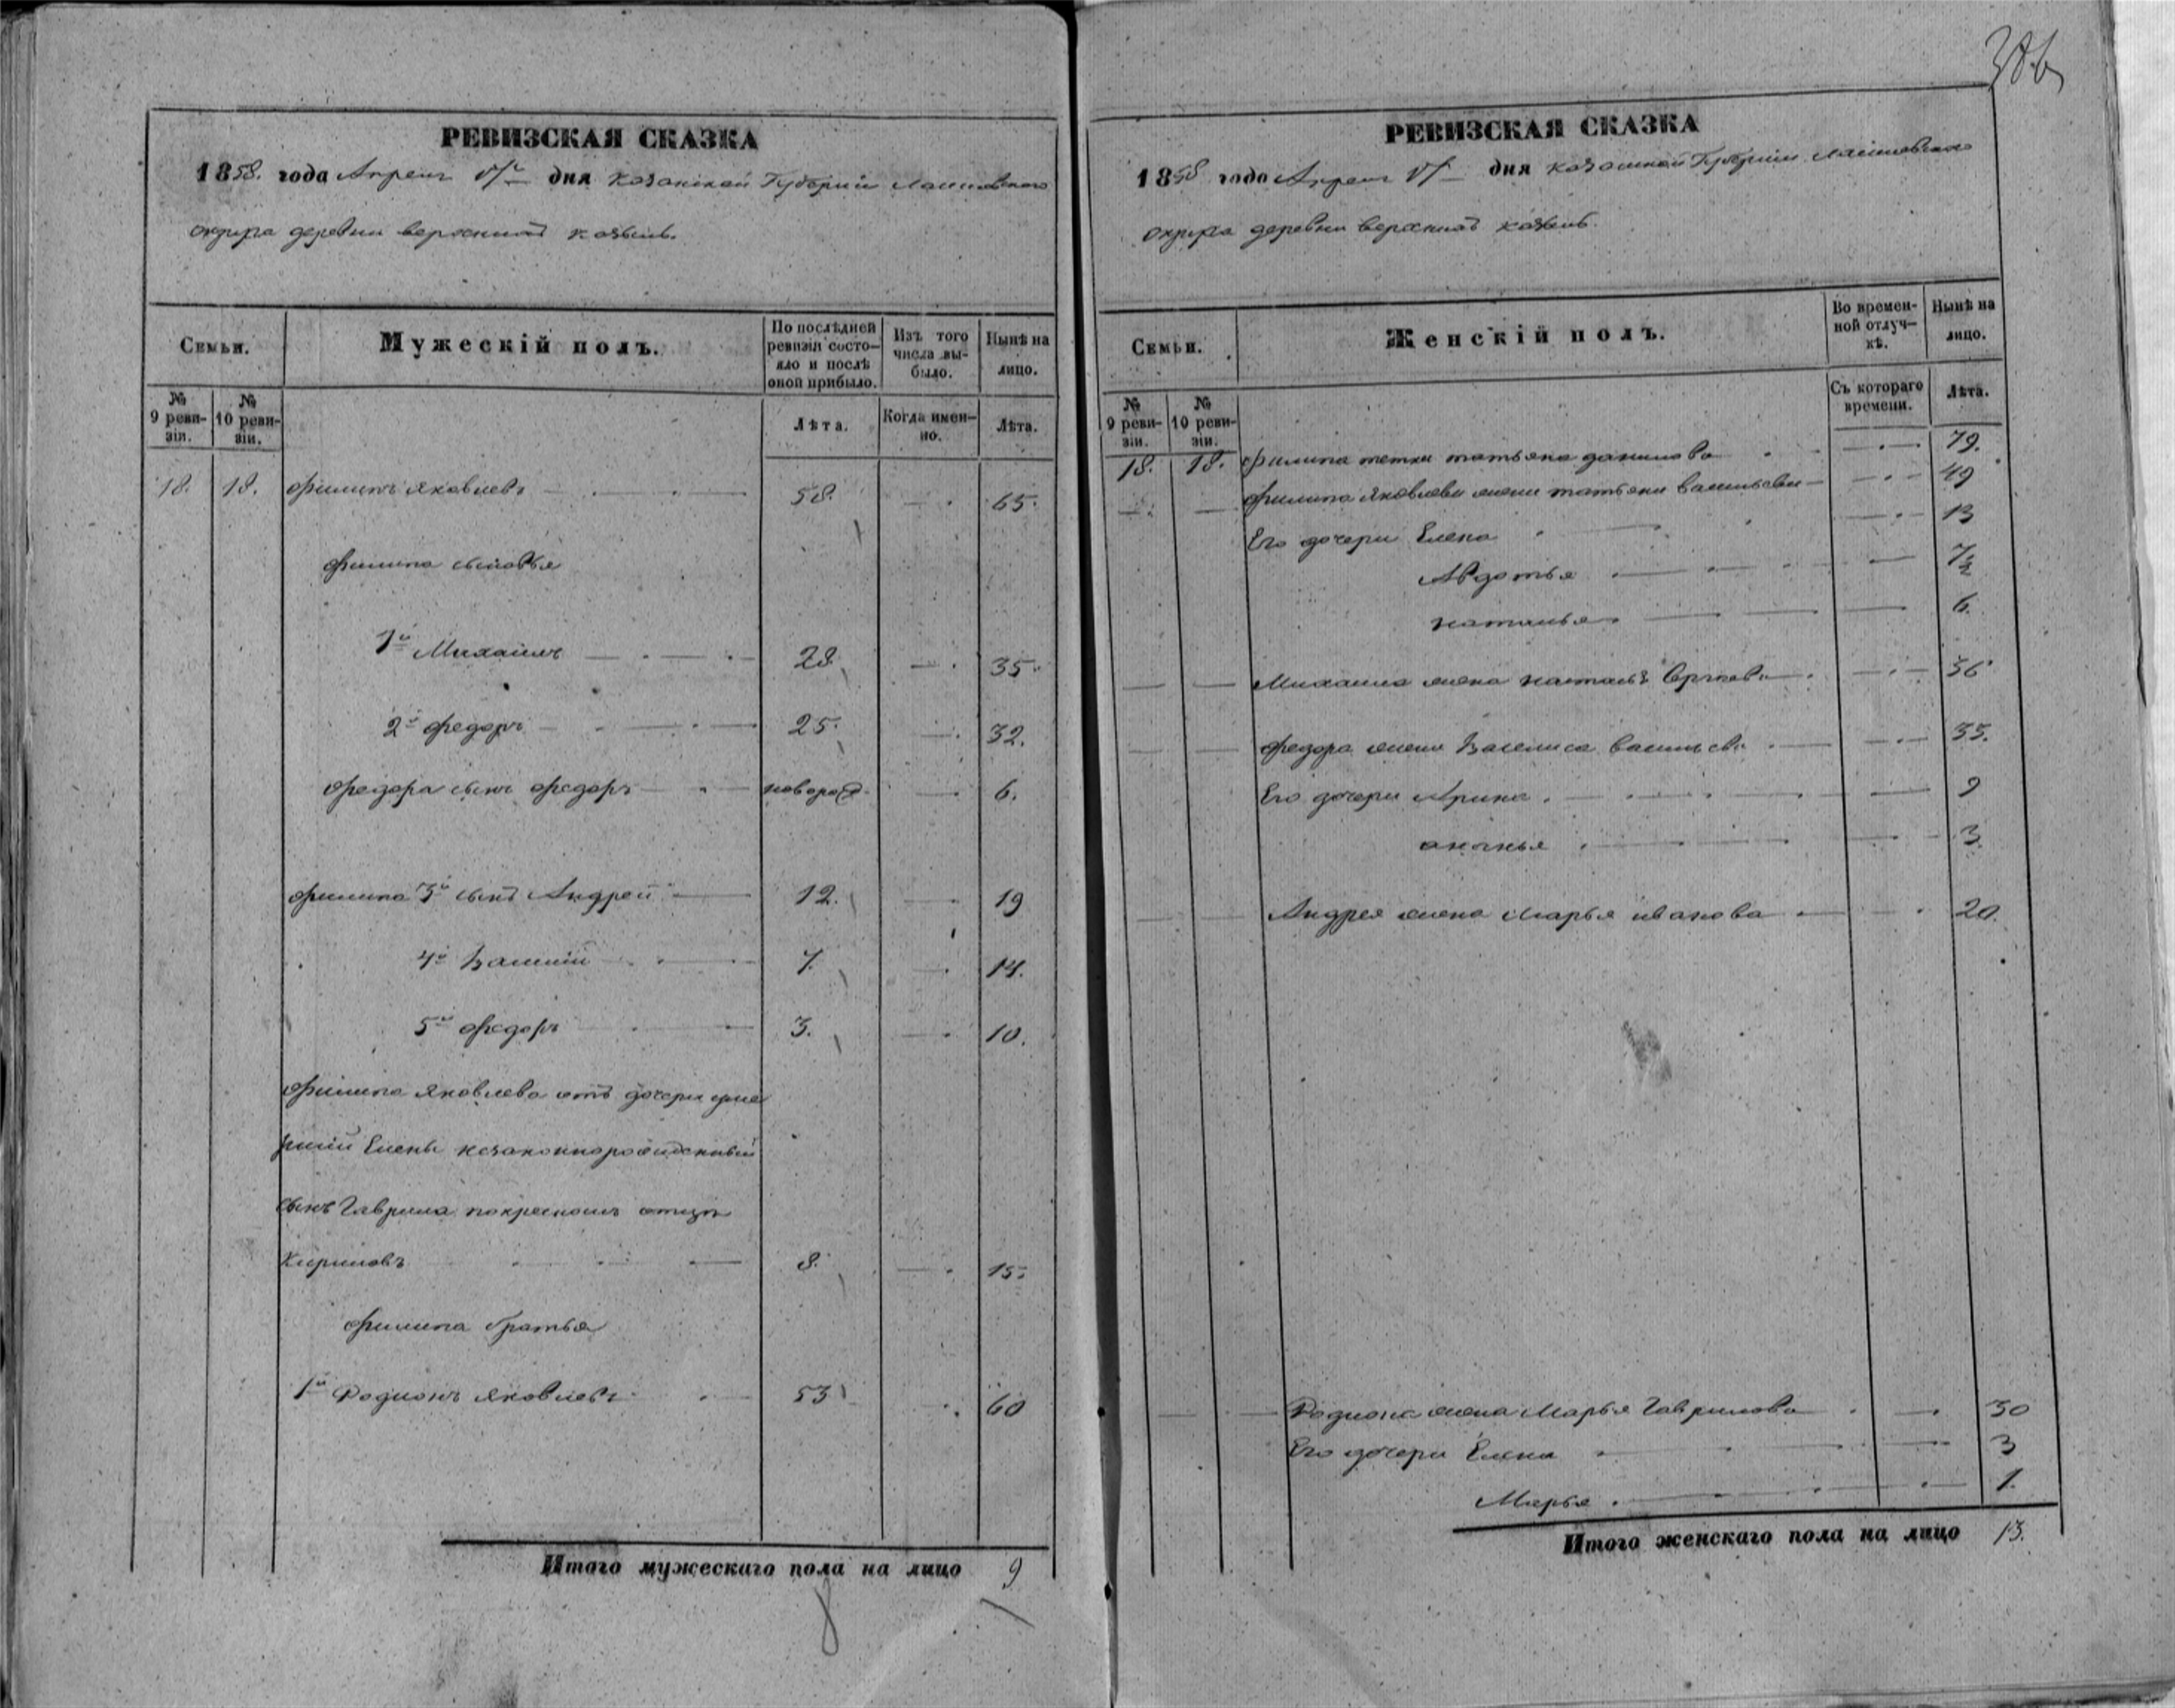 РЕВИЗСКАЯ СКАЗКА
1858. года Апреля дня Казанской Губернии Лаишевского
округа деревни верхний казыль.
Семьи.
Мужескій полъ.
По послѣдней ревизіи состояло и послѣ оной прибыло.
Изъ того числа выбыло.
Нынѣ на лицо.
№ 9 ревизіи.
№ 10 ревизіи.
Лѣта.
Когда именно.
Лѣта.
18. 18. Филипъ Яковлевъ 58. 65.
Филипа сыновья
1й Михаилъ 28. 35.
2й Федоръ 25. 32.
Федора сынъ Федоръ новорожд. 6.
Филипа 3й сынъ Андрей 12. 19
4й Василий 7. 14.
5й Федоръ 3. 10.
Филипа Яковлева отъ дочери умершей Елены незаконнорожденный
сынъ Гаврила по крестному отцу
Кириловъ 8. 15.
Филипа братья
1й Родионъ Яковлевъ 53 60
Итого мужескаго пола на лицо 9
386
РЕВИЗСКАЯ СКАЗКА
1858 года Апреля дня Казанской Губернии Лаишевского
округа деревни верхний казыль.
Семьи.
Женскій полъ.
Во временной отлучкѣ.
Нынѣ на лицо.
№ 9 ревизіи.
№ 10 ревизіи.
Съ котораго времени.
Лѣта.
18. 18. Филипа тетка татьяна данилова 79.
Филипа Яковлева жена татьяна васильева 49
Его дочери Елена 13
Авдотья 7½
наталья 6.
Михаила жена наталья 36
Федора жена Василиса васильева 33.
Его дочери Арина 9
3.
Андрея жена Марья иванова 20.
Родиона жена Марья Гаврилова 30
Его дочери Елена 3
Марья 1.
Итого женскаго пола на лицо 13.